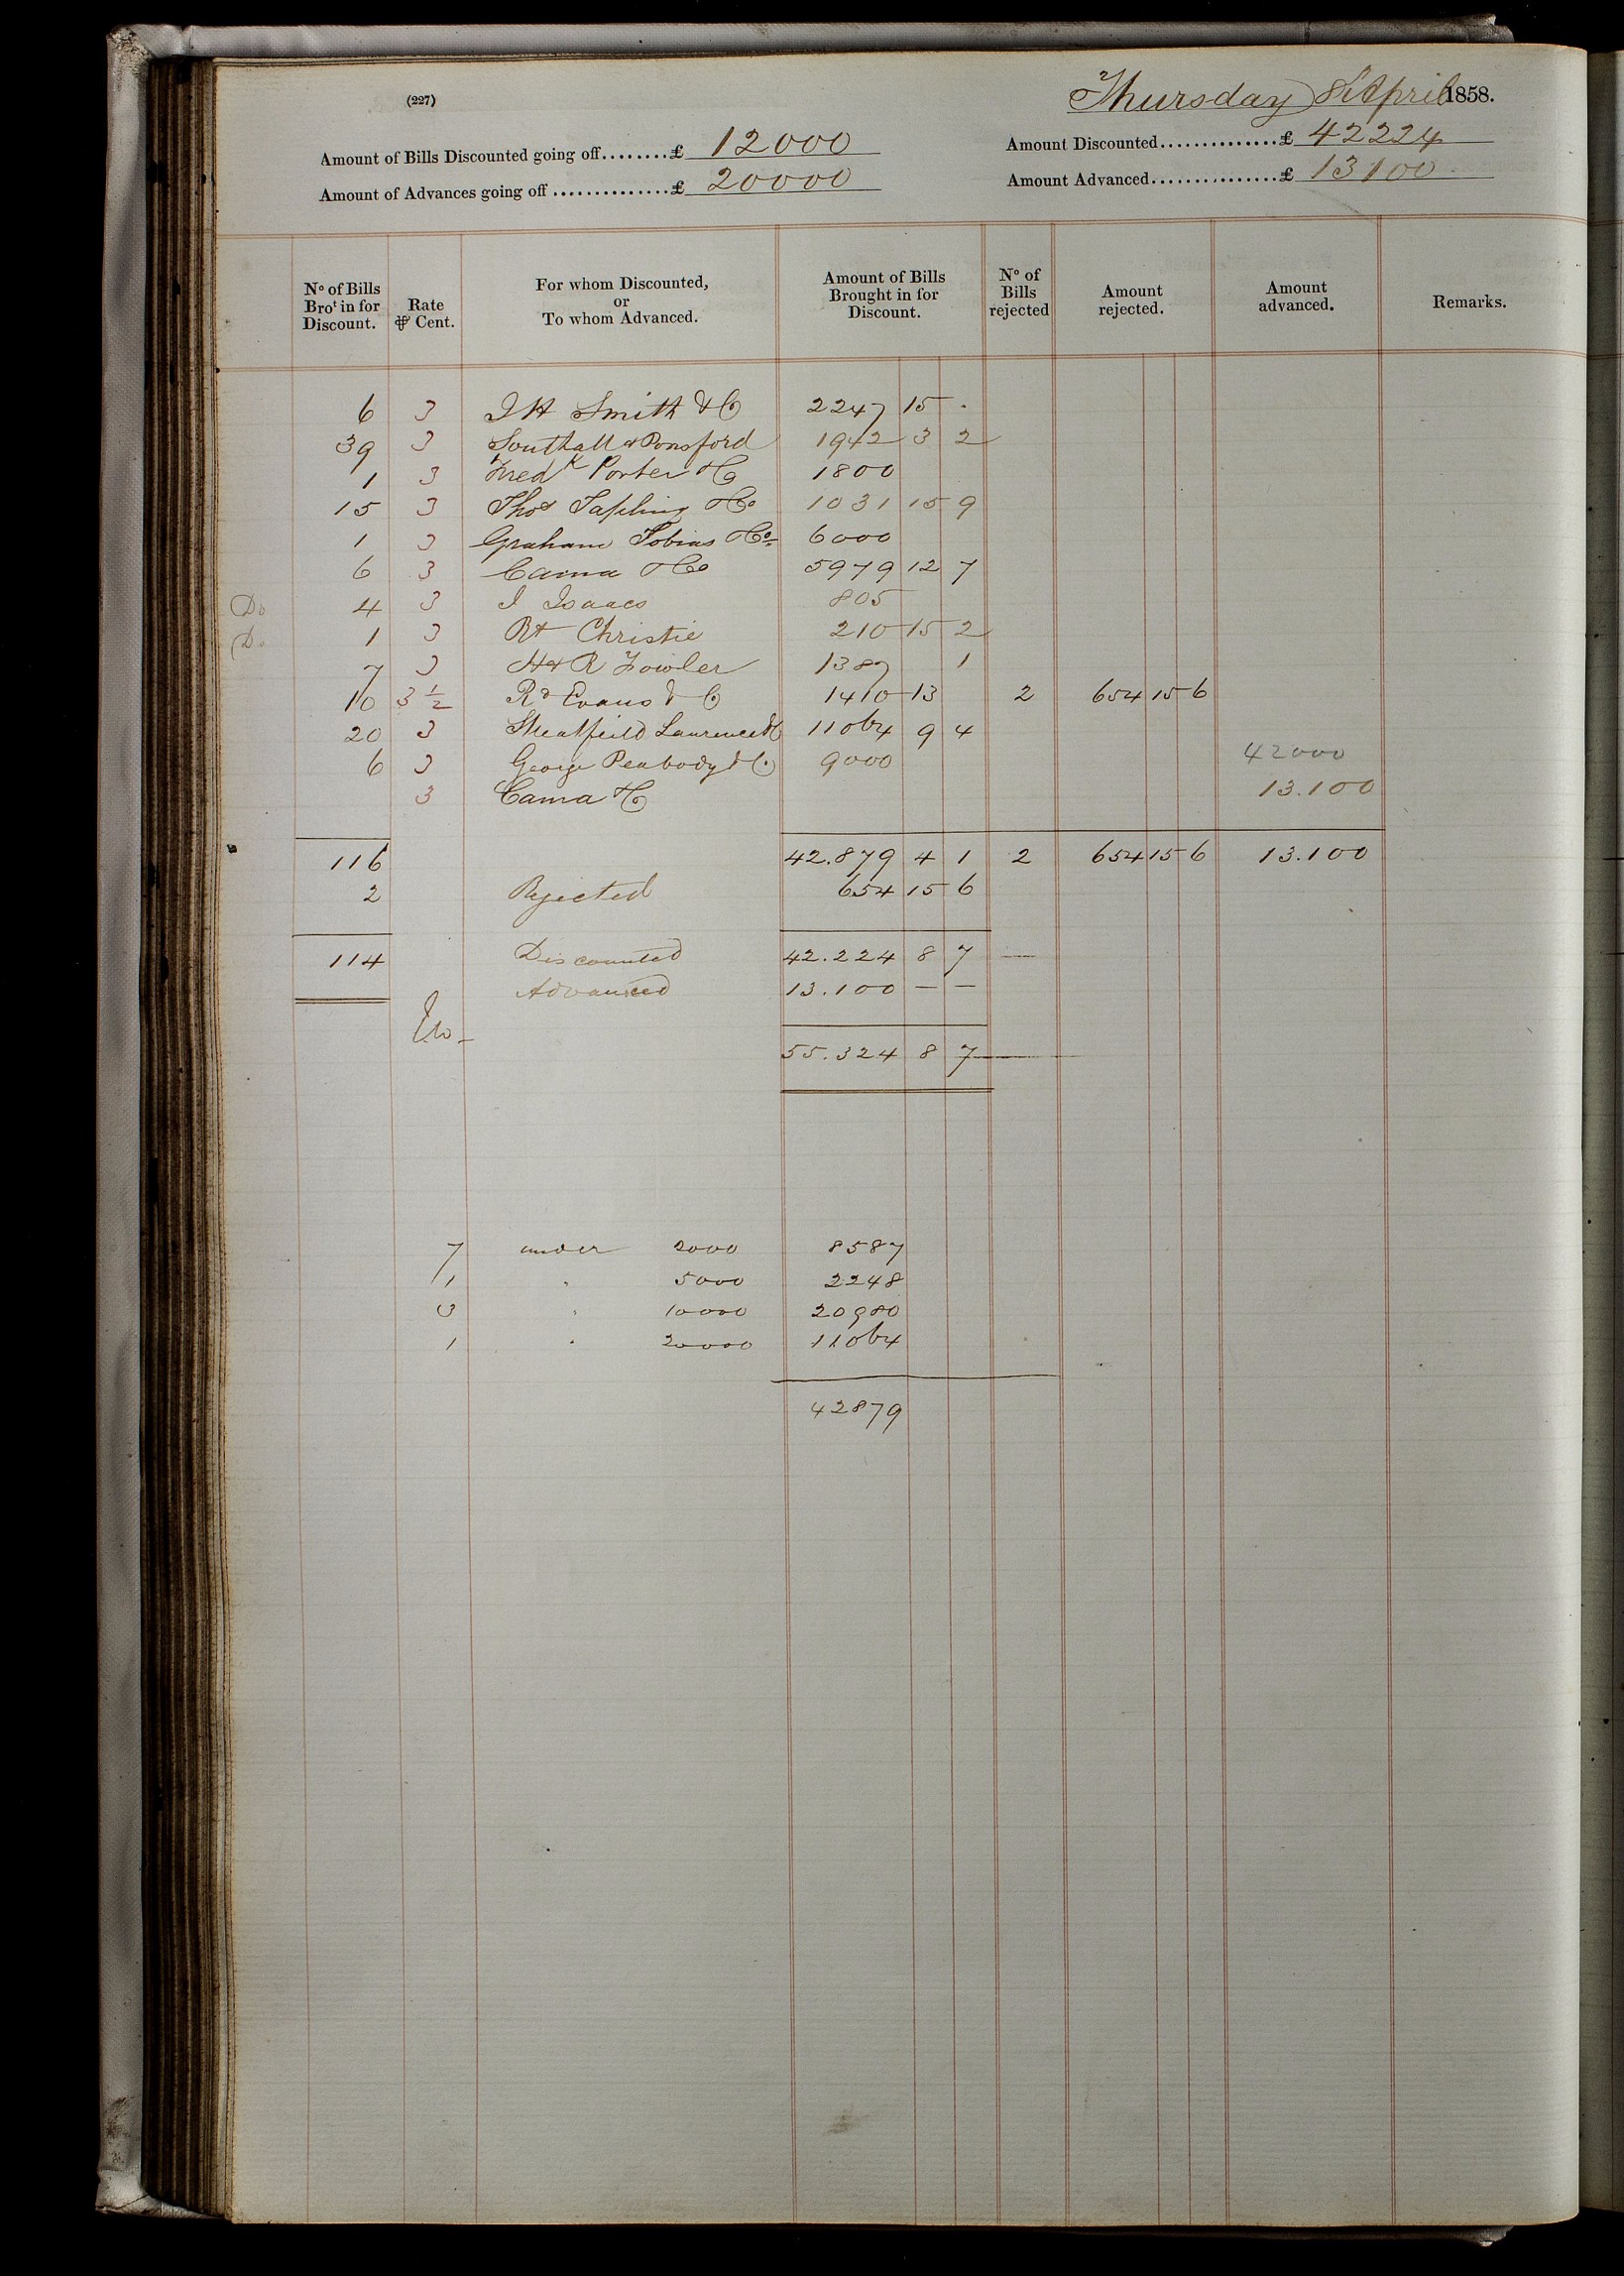 (227)
Thursday 8th April 1858.
Amount of Bills Discounted going off........£ 12000
Amount Discounted..............£ 42224
Amount of Advances going off..............£ 20000
Amount Advanced...............£ 13100
No of Bills Brot in for Discount. Rate ⅌ Cent. For whom Discounted, or To whom Advanced. Amount of Bills Brought in for Discount. No of Bills rejected Amount rejected. Amount advanced. Remarks.
6 3 J H Smith & Co 2247 15 .
39 3 Southall & Ponsford 1942 3 2
1 3 Fredk Porter & Co 1800
15 3 Thos Tapling & Co 1031 15 9
1 3 Graham Tobias & Co 6000
6 3 Cama & Co 5979 12 7
Do 4 3 I Isaacs 805
Do 1 3 Rt Christie 210 15 2
7 3 H & R Fowler 1387 1
10 3 1/2 Rd Evans & Co 1410 13 2 654 15 6
20 3 Streatfeild Laurence & Co 11064 9 4
6 3 George Peabody & Co 9000 42000
3 Cama & Co 13.100
116 42.879 4 1 2 654 15 6 13.100
2 Rejected 654 15 6
114 Discounted 42.224 8 7 —
Advanced 13.100 — —
55.324 8 7 —
7 under 2000 8587
1 " 5000 2248
3 " 10000 20980
1 " 20000 11064
42879